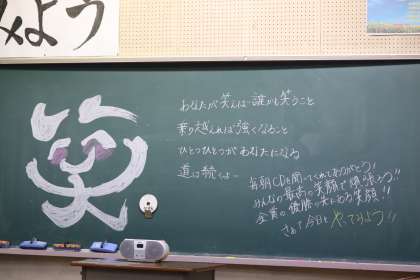 みよう
笑
あなたが笑えば誰かも笑うこと
乗り越えれば強くなること
ひとつひとつがあなたになる
道は続くよ…
毎朝CDを聞いてくれてありがとう！
みんなの最高の笑顔で頑張ろう!!
全員の優勝の次にある笑顔!!
さぁ？今日もやってみよう!!